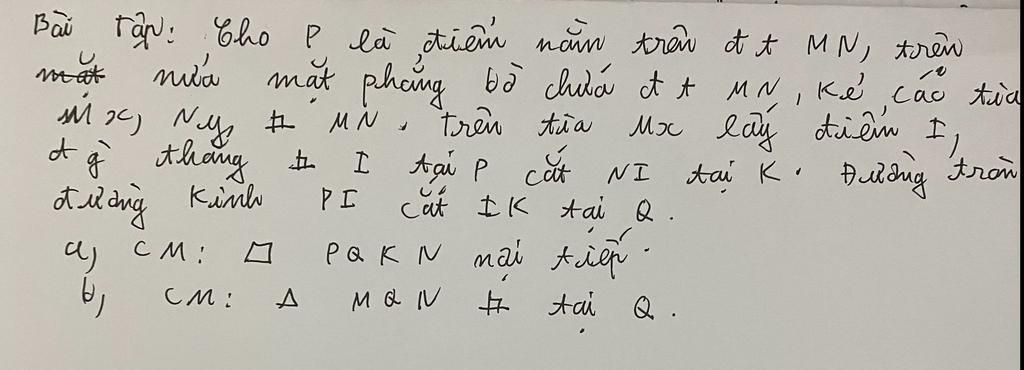 Bài tập: Cho P là điểm nằm trên đt MN, trên
mặt nửa mặt phẳng bờ chứa đt MN, kẻ các tia
Mx, Ny, ⊥ MN. Trên tia Mx lấy điểm I,
đg thẳng ⊥ I tại P cắt NI tại K. Đường tròn
đường kính PI cắt IK tại Q.
a, CM: □ PQKN nội tiếp.
b, CM: Δ MQN ⊥ tại Q.